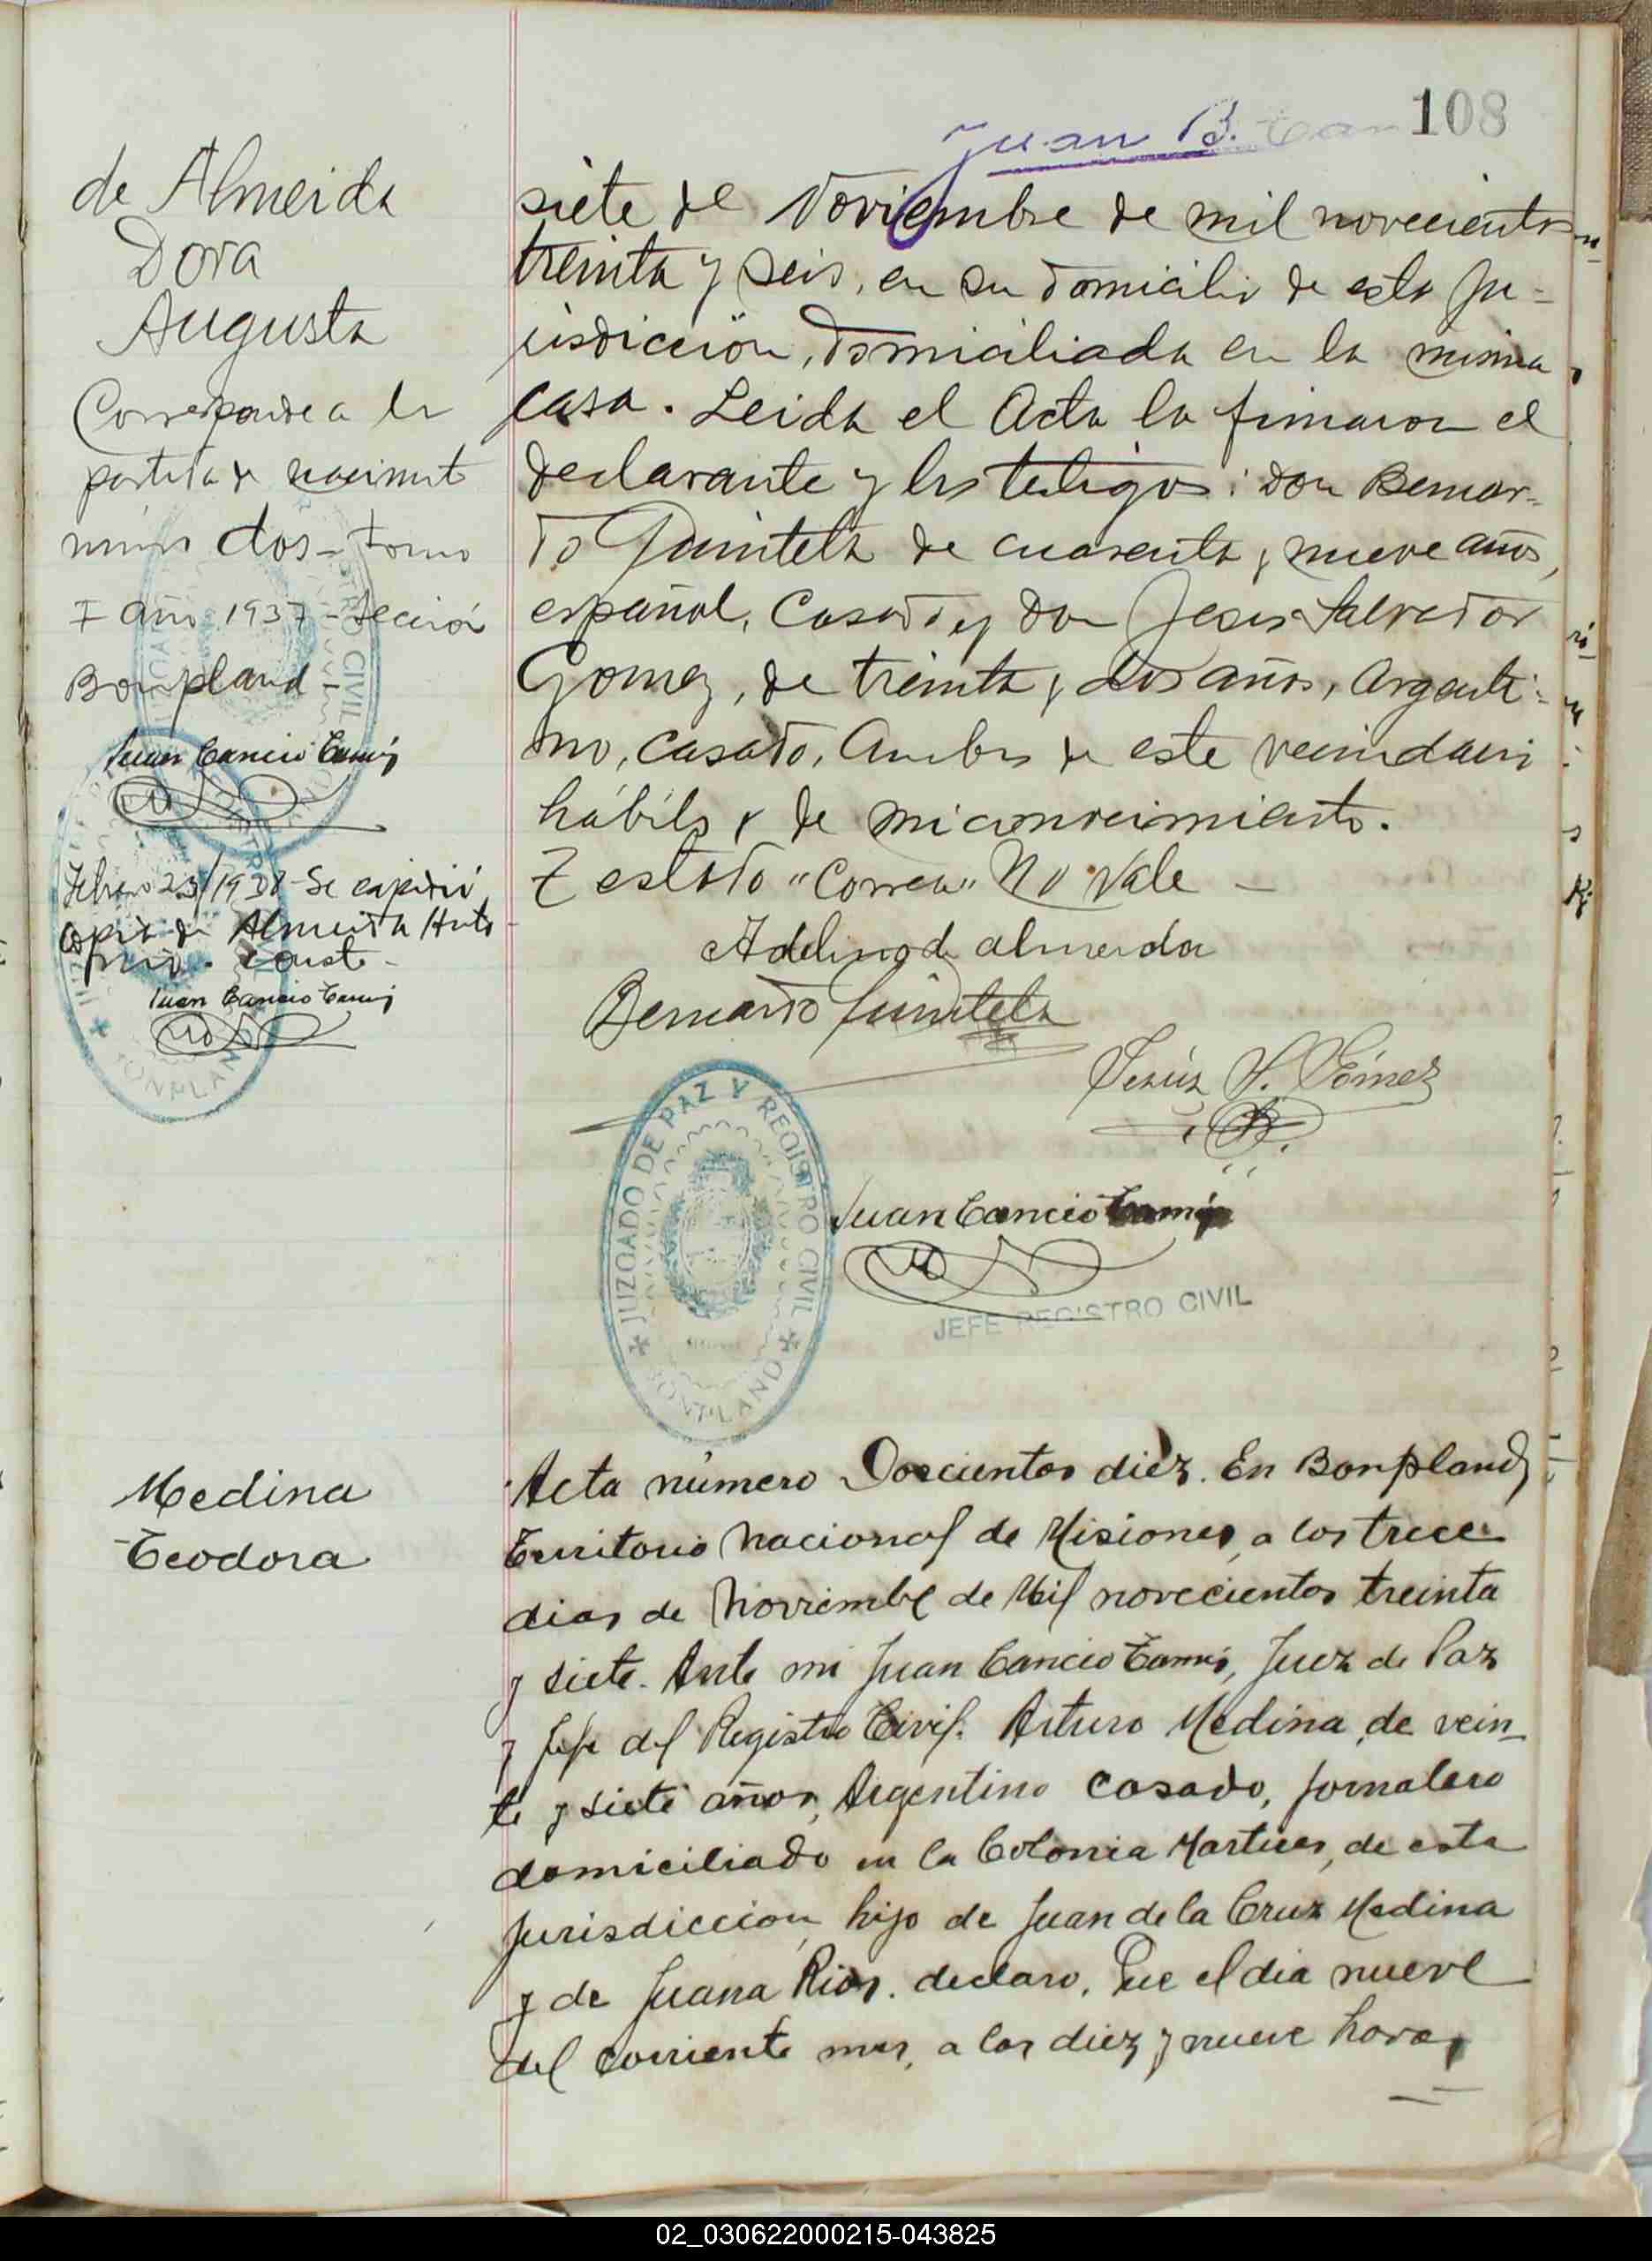 108
Juan B.
de Almeida
Dora
Augusta
Corresponde a la
partida de nacimto
número dos - tomo
I año 1937 - Sección
Bonpland
Juan Cancio
Febrero 23/1938 - Se expidió
copia de Almeida
conste -
Juan Cancio
siete de Noviembre de mil novecientos
treinta y seis, en su domicilio de esta ju-
risdicción, domiciliada en la misma
casa. Leida el Acta la firmaron el
declarante y los testigos: don Bernar-
do Quintela de cuarenta y nueve años,
español, Casado y don Jesús Salvador
Gomez, de treinta y dos años, Argenti-
no, casado, Ambos de este vecindario
hábiles y de mi conocimiento.
Testado "Correa" No Vale -
Adelino de almeida
Bernardo Quintela
Jesús S. Gómez
JUZGADO DE PAZ Y REGISTRO CIVIL
BONPLAND
Juan Cancio
JEFE REGISTRO CIVIL
Medina
Teodora
Acta número Doscientos diéz. En Bonpland
Territorio Nacional de Misiones, a los trece
dias de Noviembre de Mil novecientos treinta
y siete. Ante mi Juan Cancio, Juez de Paz
y Jefe del Registro Civil. Arturo Medina, de vein-
te y siete años, Argentino casado, jornalero
domiciliado en la Colonia Martires, de esta
jurisdiccion, hijo de Juan de la Cruz Medina
y de Juana Rios. declaro, Que el dia nueve
del corriente mes, a las diez y nueve horas,
02_030622000215-043825